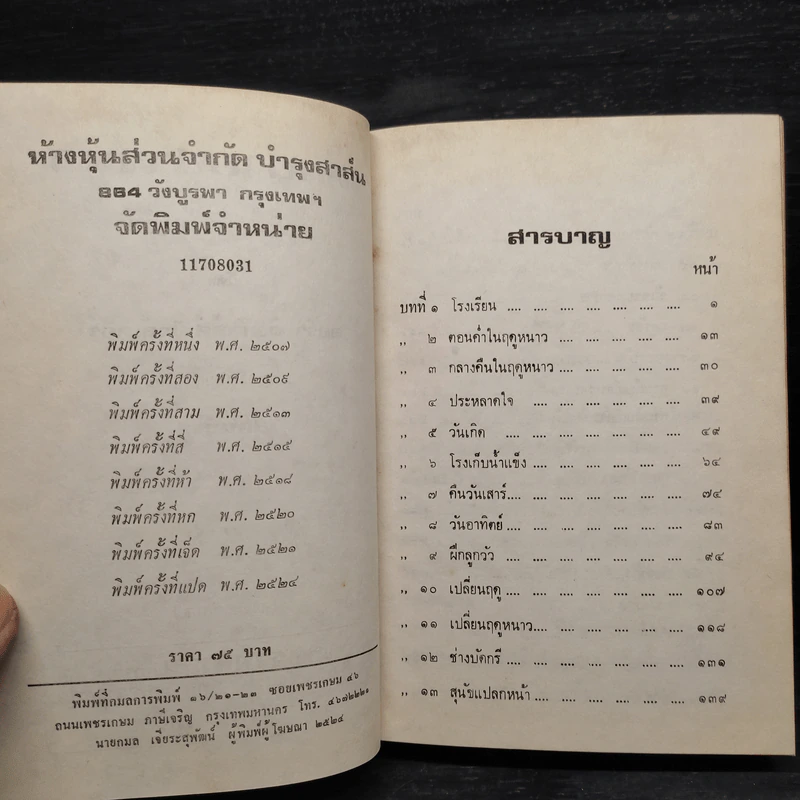 ห้างหุ้นส่วนจำกัด บำรุงสาส์น
884 วังบูรพา กรุงเทพฯ
จัดพิมพ์จำหน่าย
11708031
พิมพ์ครั้งที่หนึ่ง พ.ศ. ๒๕๐๗
พิมพ์ครั้งที่สอง พ.ศ. ๒๕๐๙
พิมพ์ครั้งที่สาม พ.ศ. ๒๕๑๓
พิมพ์ครั้งที่สี่ พ.ศ. ๒๕๑๕
พิมพ์ครั้งที่ห้า พ.ศ. ๒๕๑๘
พิมพ์ครั้งที่หก พ.ศ. ๒๕๒๐
พิมพ์ครั้งที่เจ็ด พ.ศ. ๒๕๒๑
พิมพ์ครั้งที่แปด พ.ศ. ๒๕๒๔
ราคา ๗๕ บาท
พิมพ์ที่กมลการพิมพ์ ๑๖/๒๑-๒๓ ซอยเพชรเกษม ๔๖
ถนนเพชรเกษม ภาษีเจริญ กรุงเทพมหานคร โทร. ๔๖๗๒๒๒๑
นายกมล เจียระสุพัฒน์ ผู้พิมพ์ผู้โฆษณา ๒๕๒๔
สารบาญ
หน้า
บทที่ ๑ โรงเรียน .... .... .... .... .... .... ๑
,, ๒ ตอนค่ำในฤดูหนาว .... .... .... .... ๑๓
,, ๓ กลางคืนในฤดูหนาว .... .... .... .... ๓๐
,, ๔ ประหลาดใจ .... .... .... .... .... ๓๙
,, ๕ วันเกิด .... .... .... .... .... .... ๔๙
,, ๖ โรงเก็บน้ำแข็ง .... .... .... .... .... ๖๔
,, ๗ คืนวันเสาร์.... .... .... .... .... .... ๗๔
,, ๘ วันอาทิตย์ .... .... .... .... .... .... ๘๓
,, ๙ ฝึกลูกวัว .... .... .... .... .... .... ๙๔
,, ๑๐ เปลี่ยนฤดู .... .... .... .... .... .... ๑๐๗
,, ๑๑ เปลี่ยนฤดูหนาว.... .... .... .... .... ๑๑๘
,, ๑๒ ช่างบัดกรี .... .... .... .... .... .... ๑๓๑
,, ๑๓ สุนัขแปลกหน้า .... .... .... .... .... ๑๓๙